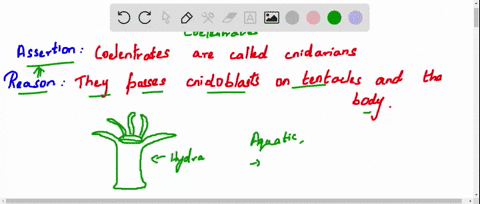 Coelentrates
Assertion: Coelentrates are called cnidarians
Reason: They posses cnidoblasts on tentacles and the
body.
← Hydra
Aquatic,
→